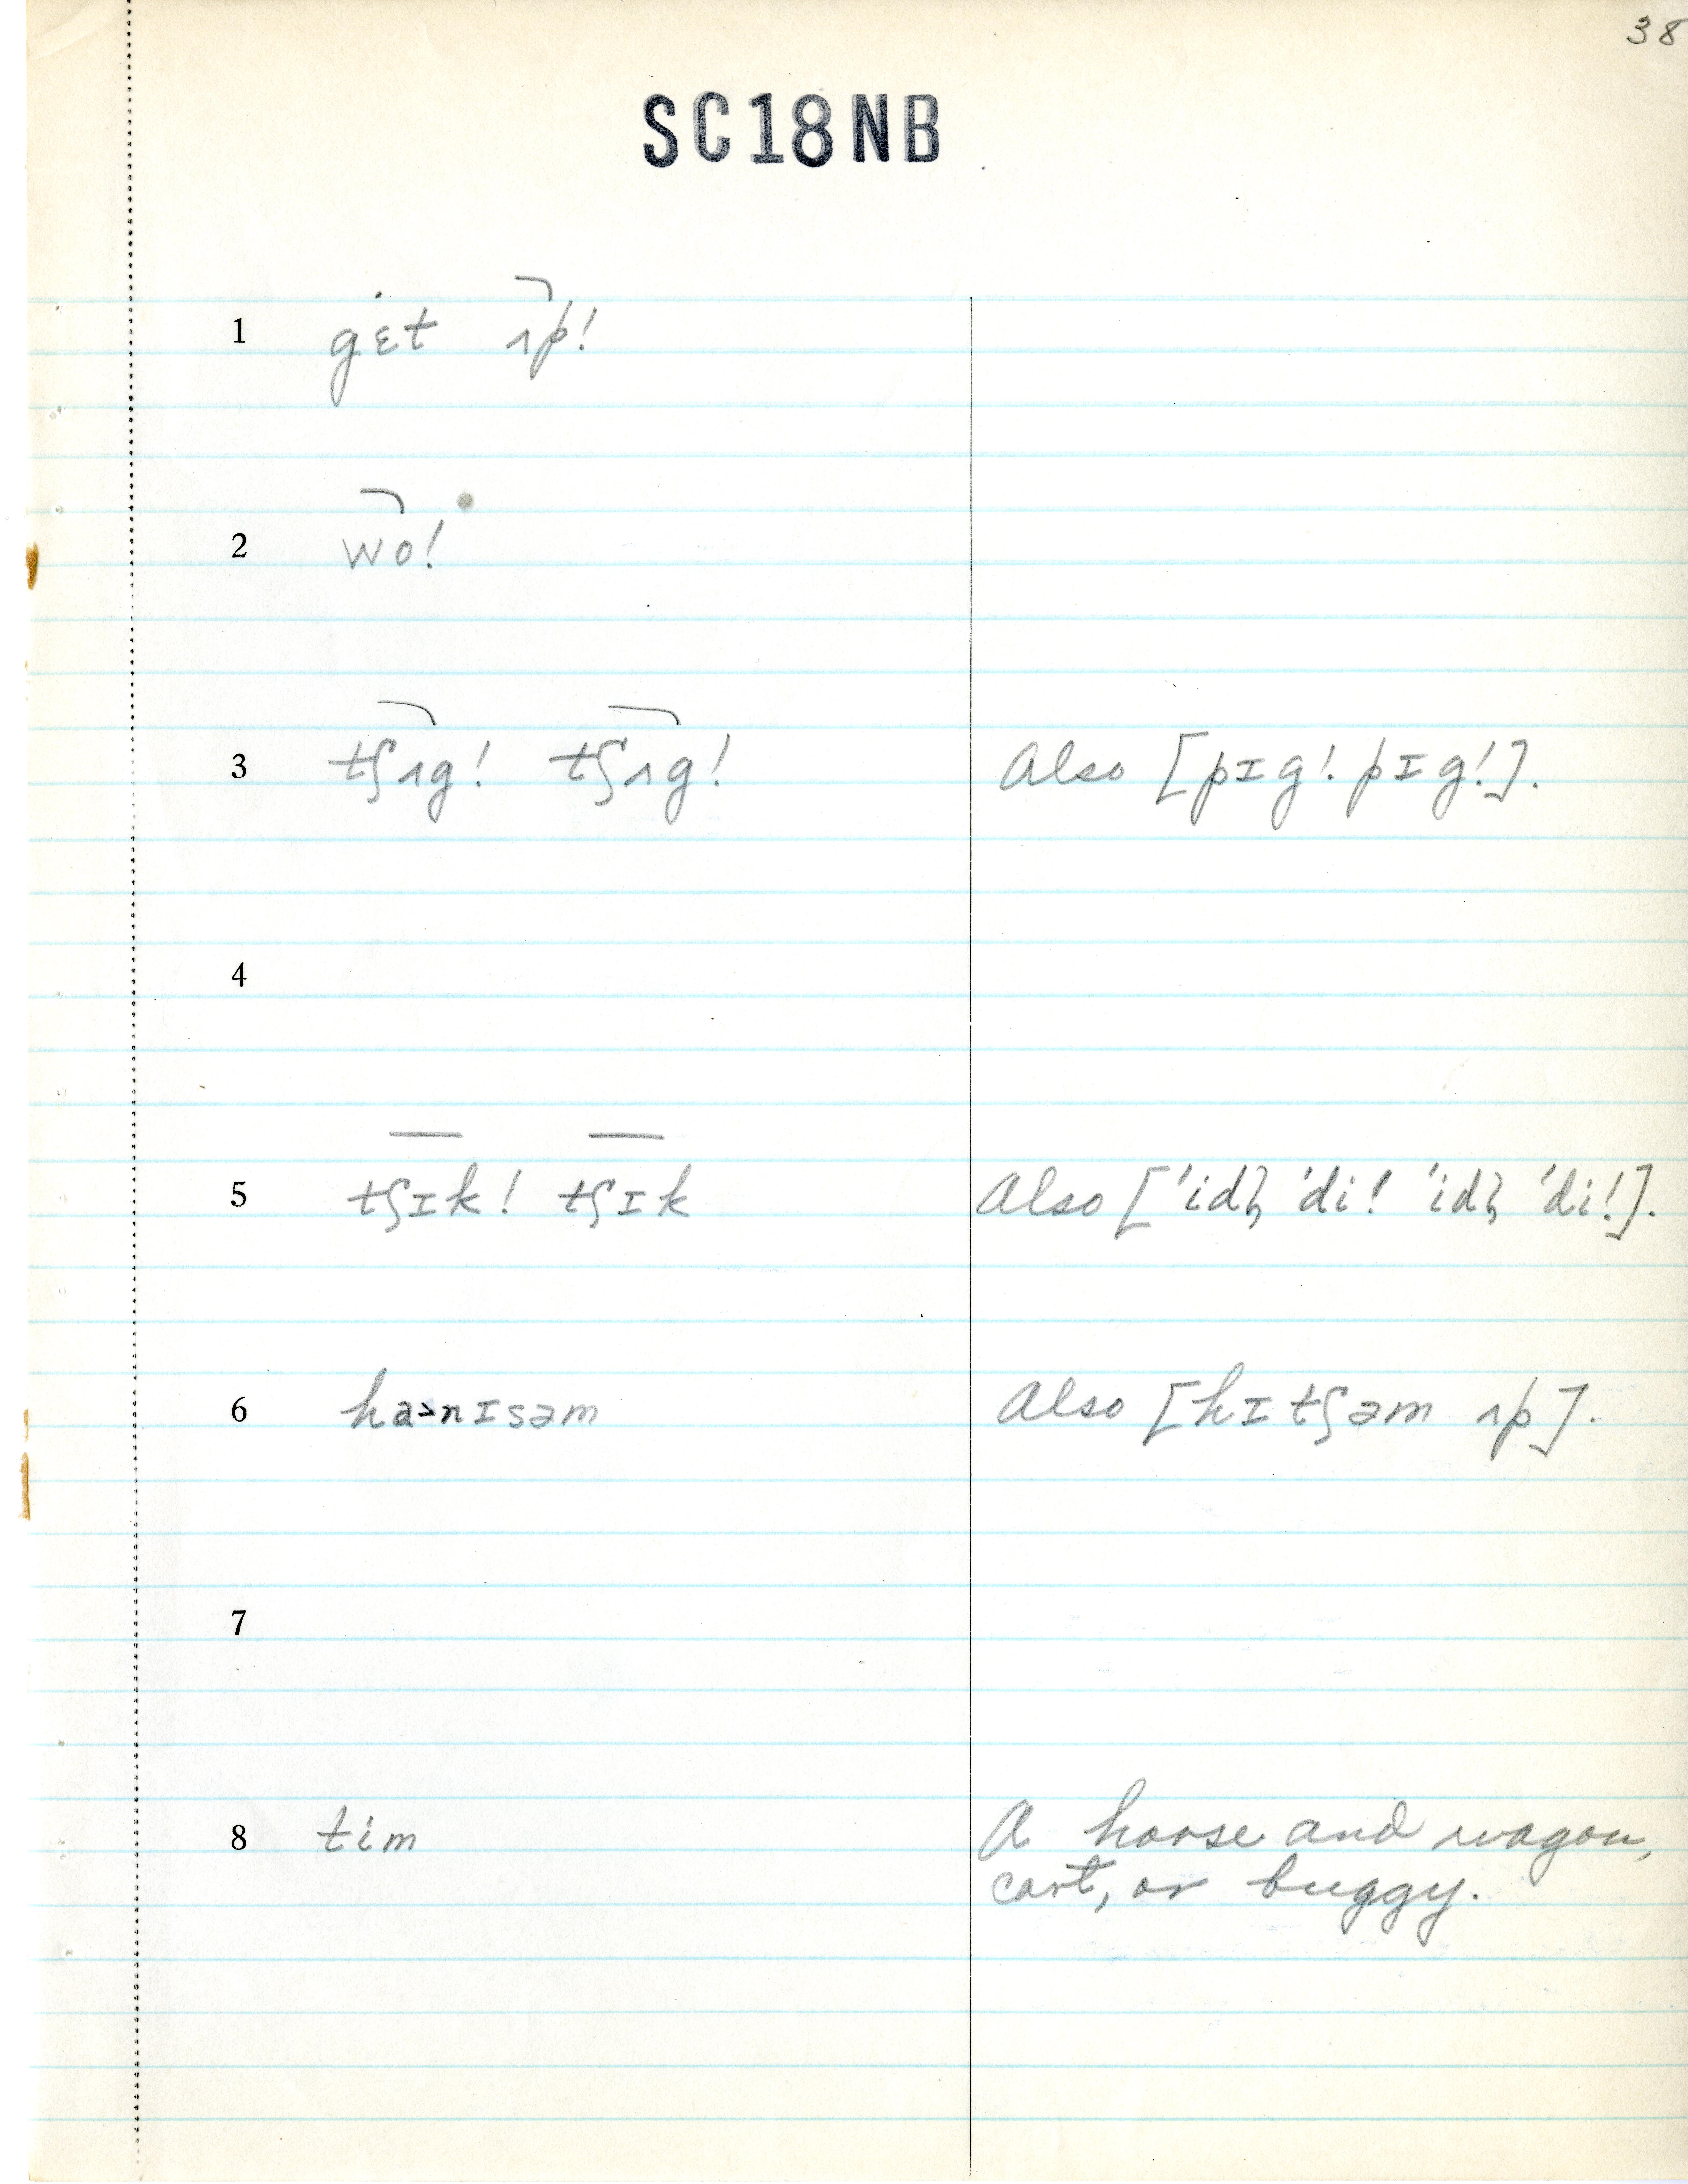 38
SC18NB
1 gɛt ʌp!
2 wo!
3 tʃʌg! tʃʌg! Also [pɪg! pɪg!].
4
5 tʃɪk! tʃɪk Also ['idɩ 'di! 'idɩ 'di!].
6 ha˃nɪsəm Also [hɪtʃəm ʌp].
7
8 tim A horse and wagon,
cart, or buggy.